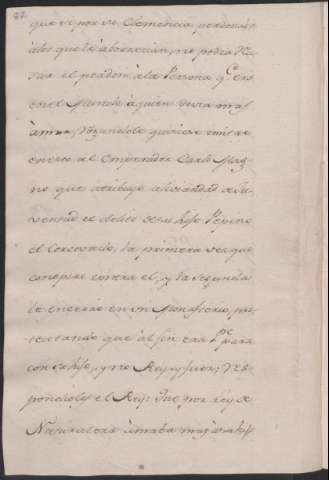 que si por su Clemencia perdonaba
àlos que le aborrecian, no podia Ne-
gar el perdon à la Persona q.e era
en el Mundo à quien devia mas
àmor, Rogandole quisiese imitar
en esto al Emperador Carlo Mag-
no que atribuyò à liviandad de Ju-
ventud el delito de su hijo Pepino
el Corcovado, la primera vez que
conspirò contra el, y la segunda
le encerrò en un Monasterio, pro-
textando que àl fin era P.e para
con su hijo, y no Rey, y Juez; Res-
pondioles el Rey: Que por Ley de
Naturaleza àmaba mas à su hijo